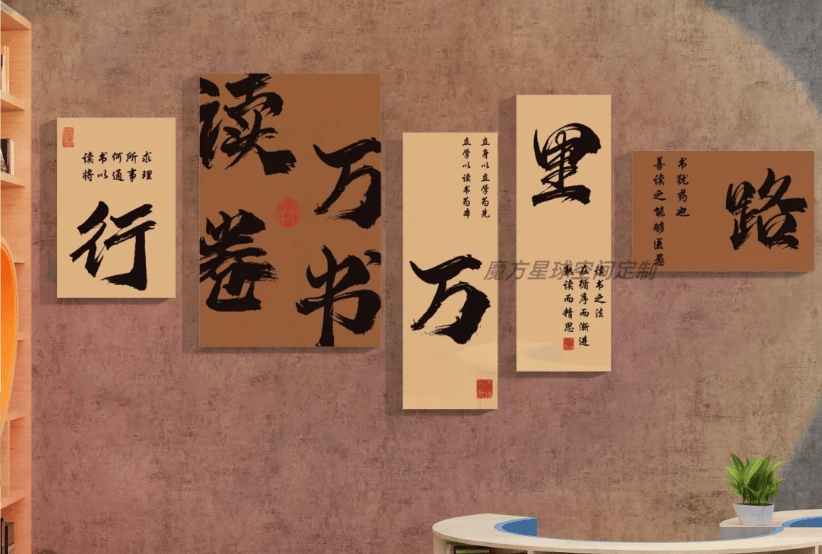 读书何所求
将以通事理
行
读万
卷书
立身以立学为先
立学以读书为本
万
里
读书之法
在循序而渐进
熟读而精思
书犹药也
善读之能够医愚
路
魔方星球空间定制